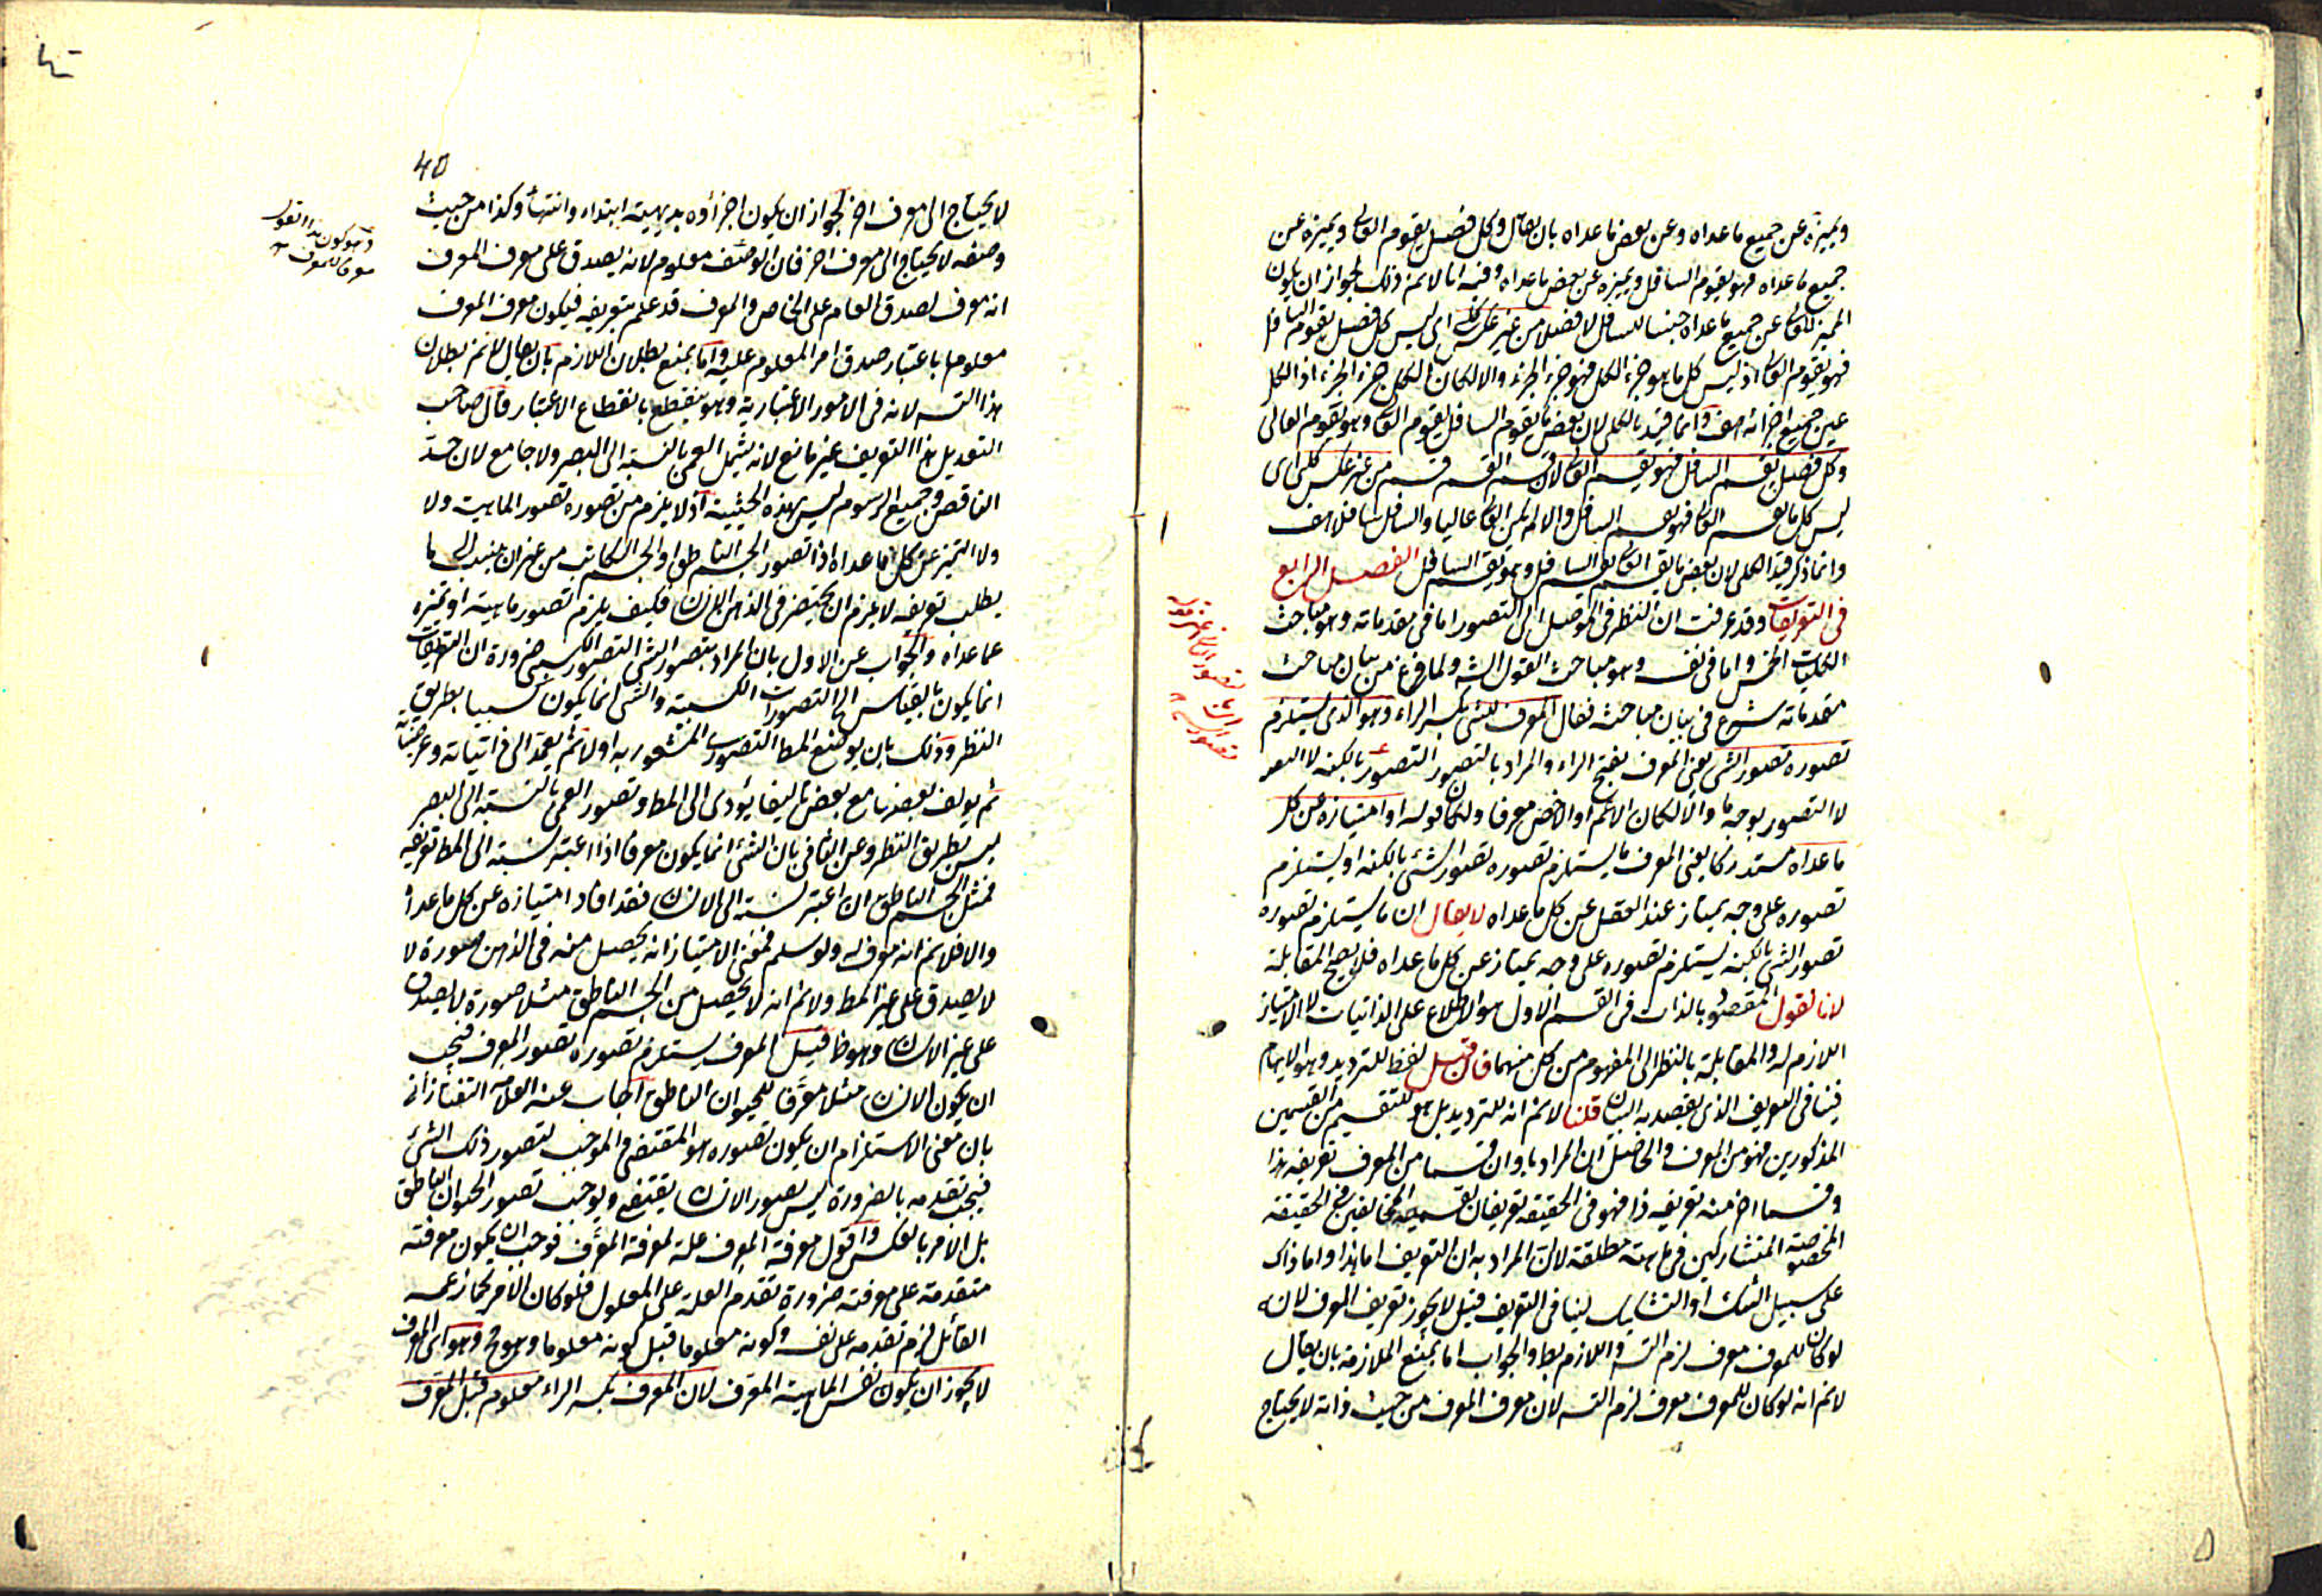 ويميزه عن جميع ماعداه وعن بعض ماعداه بان يقال وكل فصل يقوم العالى ويميزه عن
جميع ماعداه فهو يقوم السافل ويميزه عن بعض ماعداه وفيه انا لا نم ذلك لجواز ان يكون
المميز للعالى عن جميع ماعداه جنسا للسافل لا فصلا من غير عكس كلى اى ليس كل فصل يقوم السافل
فهو يقوم العالى اذ ليس كل ما هو جزء الكل فهو جزء الجزء والا لكان الكل جزء الجزء اذ الكل
عين جميع اجزائه هف وانما قيد بالكلى لان بعض ما يقوم السافل يقوم العالى وهو مقوم العالى
وكل فصل يقسم السافل فهو يقسم العالى لان قسم القسم قسم من غير عكس كلى اى
ليس كل ما يقسم العالى فهو يقسم السافل والا لم يكن العالى عاليا والسافل سافلا هف
وانما ذكر قيد الكلى لان بعض ما يقسم العالى يقسم السافل وهو مقسم السافل الفصل الرابع
فى التعريفات وقد عرفت ان النظر فى الموصل الى التصور اما فى مقدماته وهو مباحث
الكليات الخمس واما فى نفسه وهو مباحث القول الشارح ولما فرغ من بيان مباحث
مقدماته شرع فى بيان مباحثه فقال المعرف للشى بكسر الراء وهو الذى يستلزم
تصوره تصور الشى يعنى المعرف بفتح الراء والمراد بالتصور التصور بالكنه
لا التصور بوجه ما والا لكان الاعم او الاخص معرفا ولكان قوله او امتيازه عن كل
ماعداه مستدركا يعنى المعرف ما يستلزم تصوره تصور الشى بالكنه او يستلزم
تصوره على وجه يمتاز عند العقل عن كل ماعداه لا يقال ان ما يستلزم تصوره
تصور الشى بالكنه يستلزم تصوره على وجه يمتاز عن كل ماعداه فلا يصح المقابلة
لانا نقول المقصود بالذات فى القسم الاول هو الاطلاع على الذاتيات لا الامتياز
اللازم له والمقابلة بالنظر الى المفهوم من كل منهما فان قيل لفظ او للترديد وهو الابهام
فينا فى التعريف الذى يقصد به البيان قلنا لا نم انه للترديد بل هو للتقسيم من القسمين
المذكورين فهو من المعرف والحاصل ان المراد باو ان قسما من المعرف تعريفه هذا
وقسما اخر منه تعريفه ذا فهو فى الحقيقة تعريفان لقسميه المخالفين فى الحقيقة
المخصوصة المتشاركين فى ماهية مطلقة لان المراد به ان التعريف اما هذا واما ذاك
على سبيل الشك او التشكيك لينا فى التعريف قيل لا يجوز تعريف المعرف لانه
لو كان للمعرف معرف لزم التسه واللازم بط والجواب اما بمنع الملازمة بان يقال
لا نم انه لو كان للمعرف معرف لزم التسه لان معرف المعرف من حيث ذاته لا يحتاج
لا يحتاج الى معرف اخر لجواز ان يكون اجزاؤه بديهية ابتداء وانتهاء وكذا من حيث
وصفه لا يحتاج الى معرف اخر فان الوصف معلوم لانه يصدق على معرف المعرف
انه معرف لصدق العام على الخاص والمعرف قد علم بتعريفه فيكون معرف المعرف
معلوما باعتبار صدق امر المعلوم عليه واما بمنع بطلان اللازم بان يقال لا نم بطلان
هذا التسه لانه فى الامور الاعتبارية وهو ينقطع بانقطاع الاعتبار قال صاحب
التعديل هذا التعريف غير مانع لانه يشمل العمى بالنسبة الى البصر ولا جامع لان حد
الناقص وجميع الرسوم ليس بهذه الحيثية اذ لا يلزم من تصوره تصور الماهية ولا
ولا التميز عن كل ماعداه اذا تصور الجسم الناطق او الجسم الكاتب من غير ان ينسب الى ما
يطلب تعريفه لا يلزم ان يحتضر فى الذهن الانسان فكيف يلزم تصور ماهيته او تميزه
عما عداه والجواب عن الاول بان المراد بتصور الشى التصور الكسبى ضرورة ان التعريفات
انما يكون بالقياس الى التصورات الكسبية والشى انما يكون كسبيا بطريق
النظر وذلك بان يوضع المط التصورى المشعور به اولا ثم يعمد الى ذاتياته وعرضياته
ثم يولف بعضها مع بعض تاليفا يؤدى الى المط وتصور العمى بالنسبة الى البصر
ليس بطريق النظر وعن الثانى بان الشى انما يكون معرفا اذا اعتبر نسبته الى المط تعريفه
فمثل الجسم الناطق ان اعتبر نسبته الى الانسان فقد افاد امتيازه عن كل ماعداه
والا فلا نم انه معرف له ولو سلم فمعنى الامتياز انه يحصل منه فى الذهن صورة لا
لا يصدق على غير المط ولا نم انه لا يحصل من الجسم الناطق مثلا صورة لا يصدق
على غير الانسان وهو ظ قيل المعرف يستلزم تصوره تصور المعرف فيجب
ان يكون الانسان مثلا معرفا للحيوان الناطق اجاب عنه العلامة التفتازانى
بان معنى الاستلزام ان يكون تصوره هو المقتضى والموجب لتصور ذلك الشى
فيجب تقدمه بالضرورة ليس تصور الانسان يقتضى ويوجب تصور الحيوان الناطق
بل الامر بالعكس واقول معرفة المعرف علة لمعرفة المعرف فوجب ان يكون معرفته
متقدمة على معرفته ضرورة تقدم العلة على المعلول فلو كان الامر كما زعمه
القائل لزم تقدمه على نفسه وكونه معلوما قبل كونه معلوما وهو مح وهو اى المعرف
لا يجوز ان يكون نفس الماهية المعرف لان المعرف بكسر الراء معلوم قبل المعرف